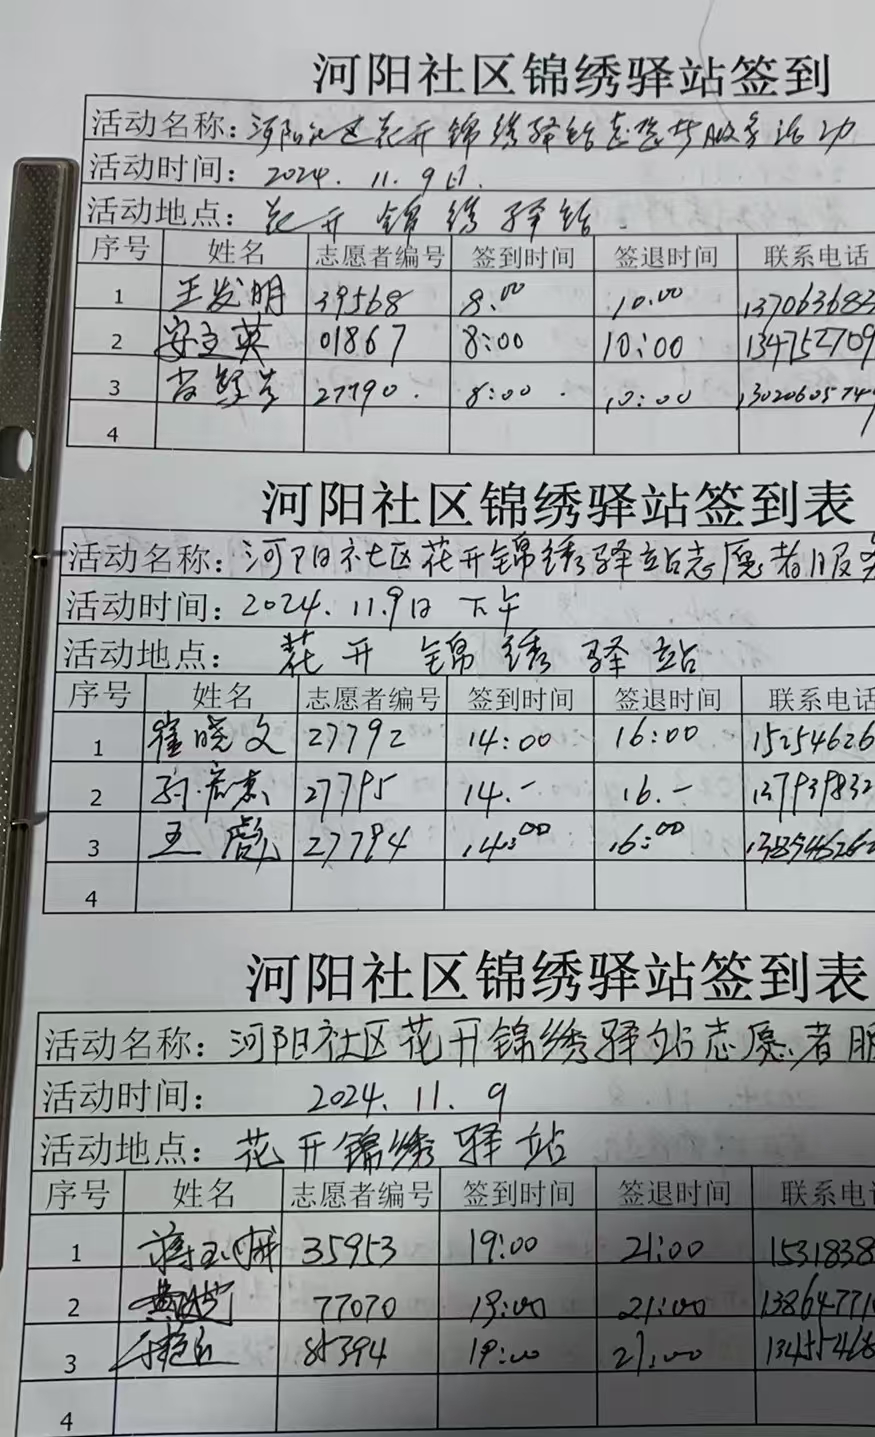 河阳社区锦绣驿站签到
活动名称：河阳社区花开锦绣驿站志愿者服务活动
活动时间：2024.11.9日.
活动地点：花开锦绣驿站.
序号 姓名 志愿者编号 签到时间 签退时间 联系电话
1 王发明 39568 8:00 10:00 137063683
2 安立英 01867 8:00 10:00 134752709
3 27790. 8:00. 10:00 1302060574
4
河阳社区锦绣驿站签到表
活动名称：河阳社区花开锦绣驿站志愿者服务
活动时间：2024.11.9日 下午
活动地点：花开锦绣驿站
序号 姓名 志愿者编号 签到时间 签退时间 联系电话
1 崔晓文 27792 14:00 16:00 15254626
2 27795 14.- 16.- 137939832
3 王彪 27794 14:00 16:00
4
河阳社区锦绣驿站签到表
活动名称：河阳社区花开锦绣驿站志愿者服
活动时间：2024.11.9
活动地点：花开锦绣驿站
序号 姓名 志愿者编号 签到时间 签退时间 联系电话
1 35953 19:00 21:00 1531838
2 77070 19:00 21:00 13864771
3 85394 19:00 21:00 13455466
4